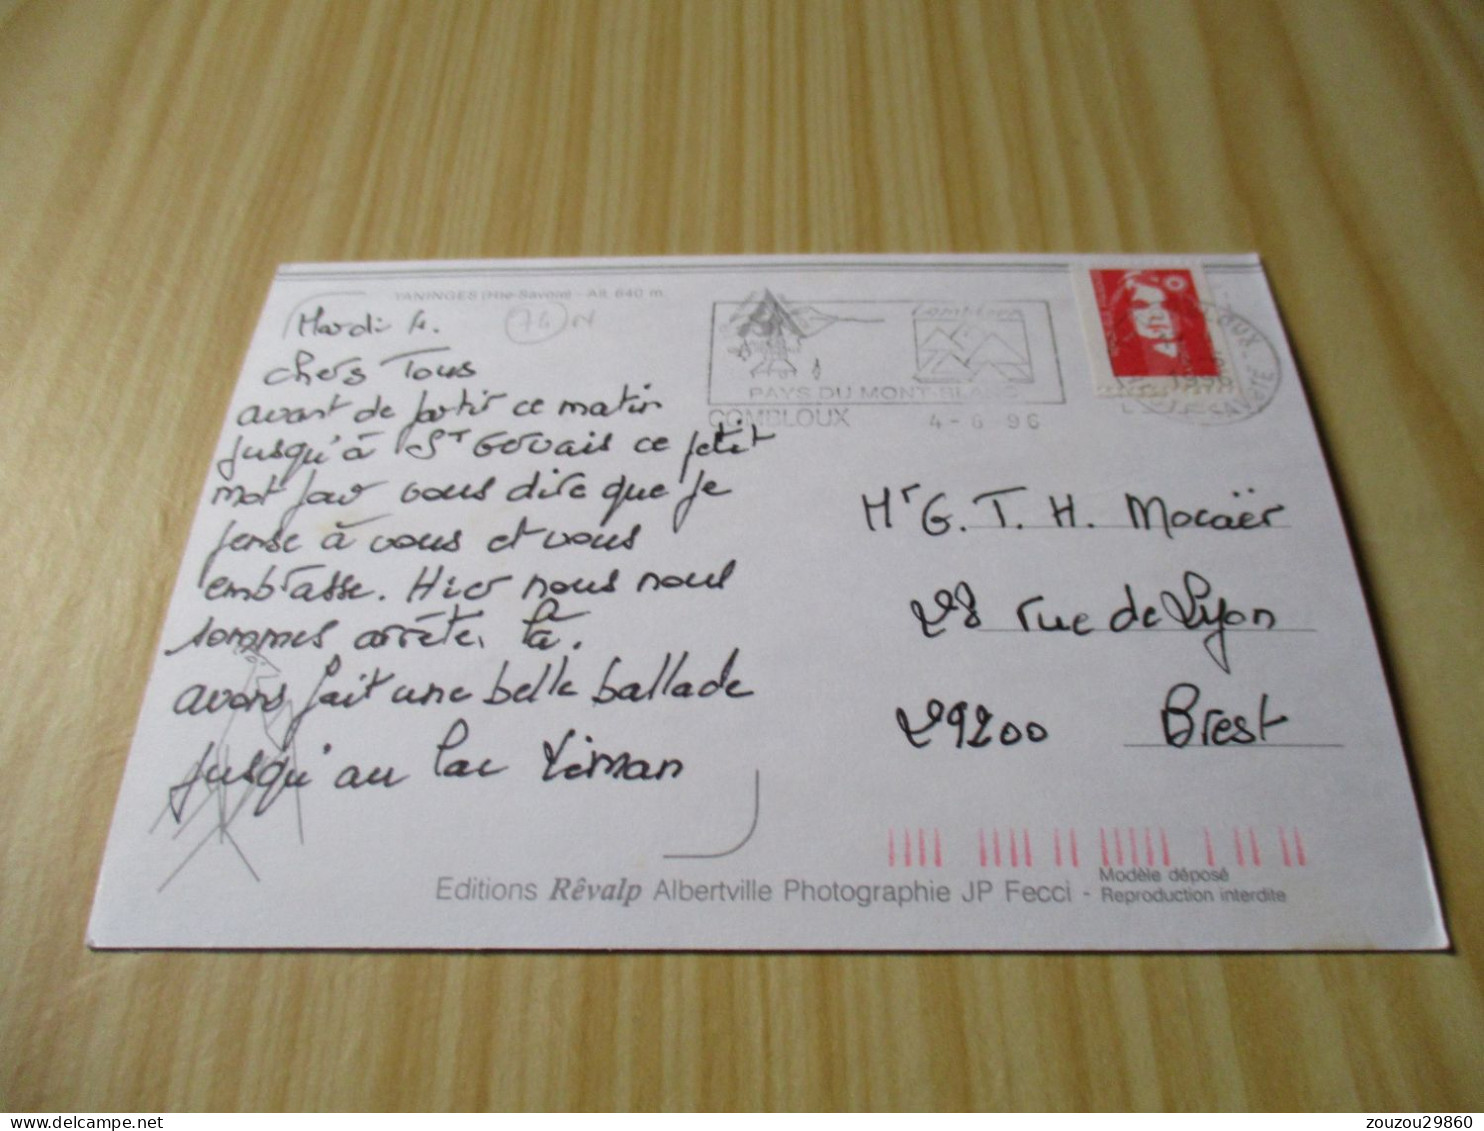 TANINGES (Hte-Savoie) - Alt. 640 m.
Mardi 4.
74 N
Chers Tous
avant de partir ce matin
jusqu'à St Gervais ce petit
mot pour vous dire que je
pense à vous et vous
embrasse. Hier nous nous
sommes arrêter là.
avons fait une belle ballade
jusqu'au lac Léman
COMBLOUX
PAYS DU MONT-BLANC
COMBLOUX 4-6 96
Mr G. T. H. Mocaër
28 rue de Lyon
29200 Brest
Editions Rêvalp Albertville Photographie JP Fecci -
Modèle déposé
Reproduction interdite
zouzou29860